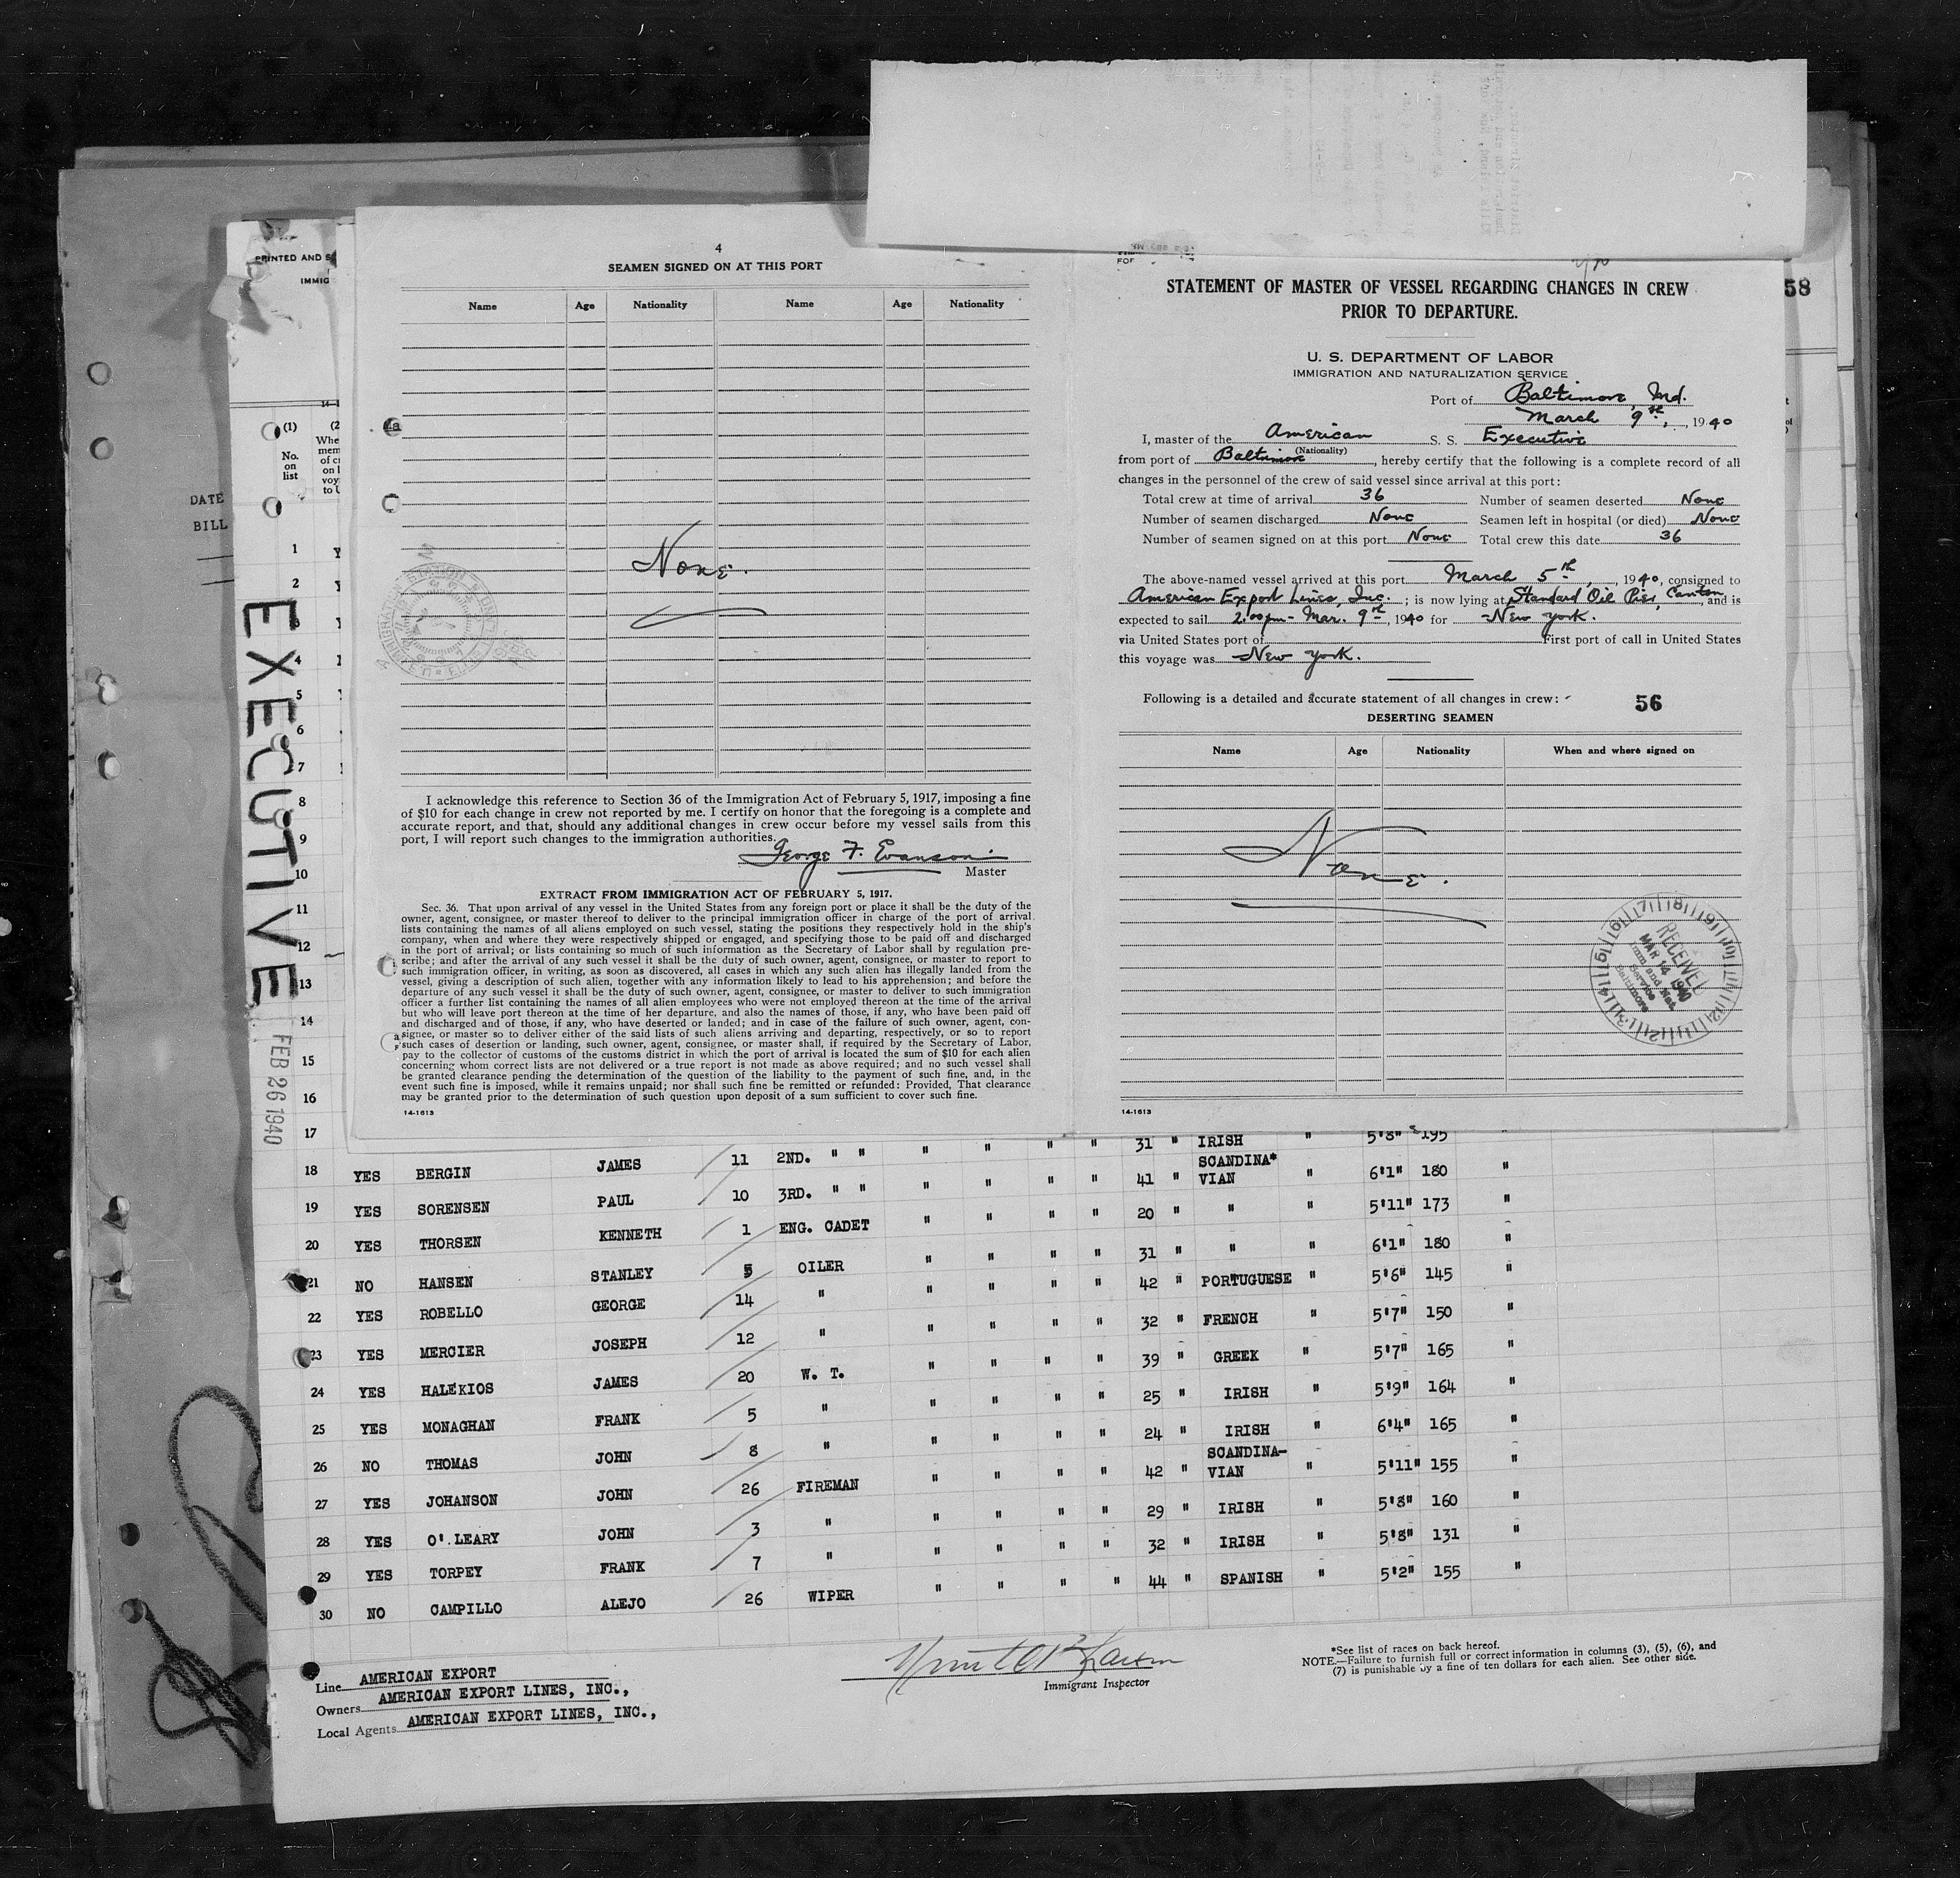 PRINTED AND S
IMMIG
DATE
BILL
(1)
No.
on
list
(2
Whe
mem
of c
on l
voy
to U
EXECUTIVE
FEB 26 1940
4
SEAMEN SIGNED ON AT THIS PORT
Name Age Nationality Name Age Nationality
None.
I acknowledge this reference to Section 36 of the Immigration Act of February 5, 1917, imposing a fine
of $10 for each change in crew not reported by me. I certify on honor that the foregoing is a complete and
accurate report, and that, should any additional changes in crew occur before my vessel sails from this
port, I will report such changes to the immigration authorities.
George F. Evanson
Master
EXTRACT FROM IMMIGRATION ACT OF FEBRUARY 5, 1917.
Sec. 36. That upon arrival of any vessel in the United States from any foreign port or place it shall be the duty of the
owner, agent, consignee, or master thereof to deliver to the principal immigration officer in charge of the port of arrival
lists containing the names of all aliens employed on such vessel, stating the positions they respectively hold in the ship's
company, when and where they were respectively shipped or engaged, and specifying those to be paid off and discharged
in the port of arrival; or lists containing so much of such information as the Secretary of Labor shall by regulation pre-
scribe; and after the arrival of any such vessel it shall be the duty of such owner, agent, consignee, or master to report to
such immigration officer, in writing, as soon as discovered, all cases in which any such alien has illegally landed from the
vessel, giving a description of such alien, together with any information likely to lead to his apprehension; and before the
departure of any such vessel it shall be the duty of such owner, agent, consignee, or master to deliver to such immigration
officer a further list containing the names of all alien employees who were not employed thereon at the time of the arrival
but who will leave port thereon at the time of her departure, and also the names of those, if any, who have been paid off
and discharged and of those, if any, who have deserted or landed; and in case of the failure of such owner, agent, con-
signee, or master so to deliver either of the said lists of such aliens arriving and departing, respectively, or so to report
such cases of desertion or landing, such owner, agent, consignee, or master shall, if required by the Secretary of Labor,
pay to the collector of customs of the customs district in which the port of arrival is located the sum of $10 for each alien
concerning whom correct lists are not delivered or a true report is not made as above required; and no such vessel shall
be granted clearance pending the determination of the question of the liability to the payment of such fine, and, in the
event such fine is imposed, while it remains unpaid; nor shall such fine be remitted or refunded: Provided, That clearance
may be granted prior to the determination of such question upon deposit of a sum sufficient to cover such fine.
14-1613
FOR
STATEMENT OF MASTER OF VESSEL REGARDING CHANGES IN CREW
PRIOR TO DEPARTURE.
58
U. S. DEPARTMENT OF LABOR
IMMIGRATION AND NATURALIZATION SERVICE
Port of Baltimore, Md.
March 9th, 1940
I, master of the American S. S. Executive
(Nationality)
from port of Baltimore, hereby certify that the following is a complete record of all
changes in the personnel of the crew of said vessel since arrival at this port:
Total crew at time of arrival 36 Number of seamen deserted None
Number of seamen discharged None Seamen left in hospital (or died) None
Number of seamen signed on at this port None Total crew this date 36
The above-named vessel arrived at this port March 5th, 1940, consigned to
American Export Lines, Inc.; is now lying at Standard Oil Pier, Canton, and is
expected to sail 2.00pm - Mar. 9th, 1940 for New York.
via United States port of First port of call in United States
this voyage was New York.
Following is a detailed and accurate statement of all changes in crew:
56
DESERTING SEAMEN
Name Age Nationality When and where signed on
None.
RECEIVED
MAR 14 1940
Imm and Nat.
Service
Baltimore
14-1613
1
2
3
4
5
6
7
8
9
10
11
12
13
14
15
16
17 31 " IRISH " 5'8" 195
18 YES BERGIN JAMES 11 2ND. " " " " " " 41 " SCANDINA*VIAN " 6'1" 180 "
19 YES SORENSEN PAUL 10 3RD. " " " " " " 20 " " " 5'11" 173 "
20 YES THORSEN KENNETH 1 ENG. CADET " " " " 31 " " " 6'1" 180 "
21 NO HANSEN STANLEY 5 OILER " " " " 42 " PORTUGUESE " 5'6" 145 "
22 YES ROBELLO GEORGE 14 " " " " " 32 " FRENCH " 5'7" 150 "
23 YES MERCIER JOSEPH 12 " " " " " 39 " GREEK " 5'7" 165 "
24 YES HALEKIOS JAMES 20 W. T. " " " " 25 " IRISH " 5'9" 164 "
25 YES MONAGHAN FRANK 5 " " " " " 24 " IRISH " 6'4" 165 "
26 NO THOMAS JOHN 8 " " " " " 42 " SCANDINA-VIAN " 5'11" 155 "
27 YES JOHANSON JOHN 26 FIREMAN " " " " 29 " IRISH " 5'8" 160 "
28 YES O'.LEARY JOHN 3 " " " " " 32 " IRISH " 5'8" 131 "
29 YES TORPEY FRANK 7 " " " " " 44 " SPANISH " 5'2" 155 "
30 NO CAMPILLO ALEJO 26 WIPER
Line AMERICAN EXPORT
Owners AMERICAN EXPORT LINES, INC.,
Local Agents AMERICAN EXPORT LINES, INC.,
Immigrant Inspector
*See list of races on back hereof.
NOTE.—Failure to furnish full or correct information in columns (3), (5), (6), and
(7) is punishable by a fine of ten dollars for each alien. See other side.